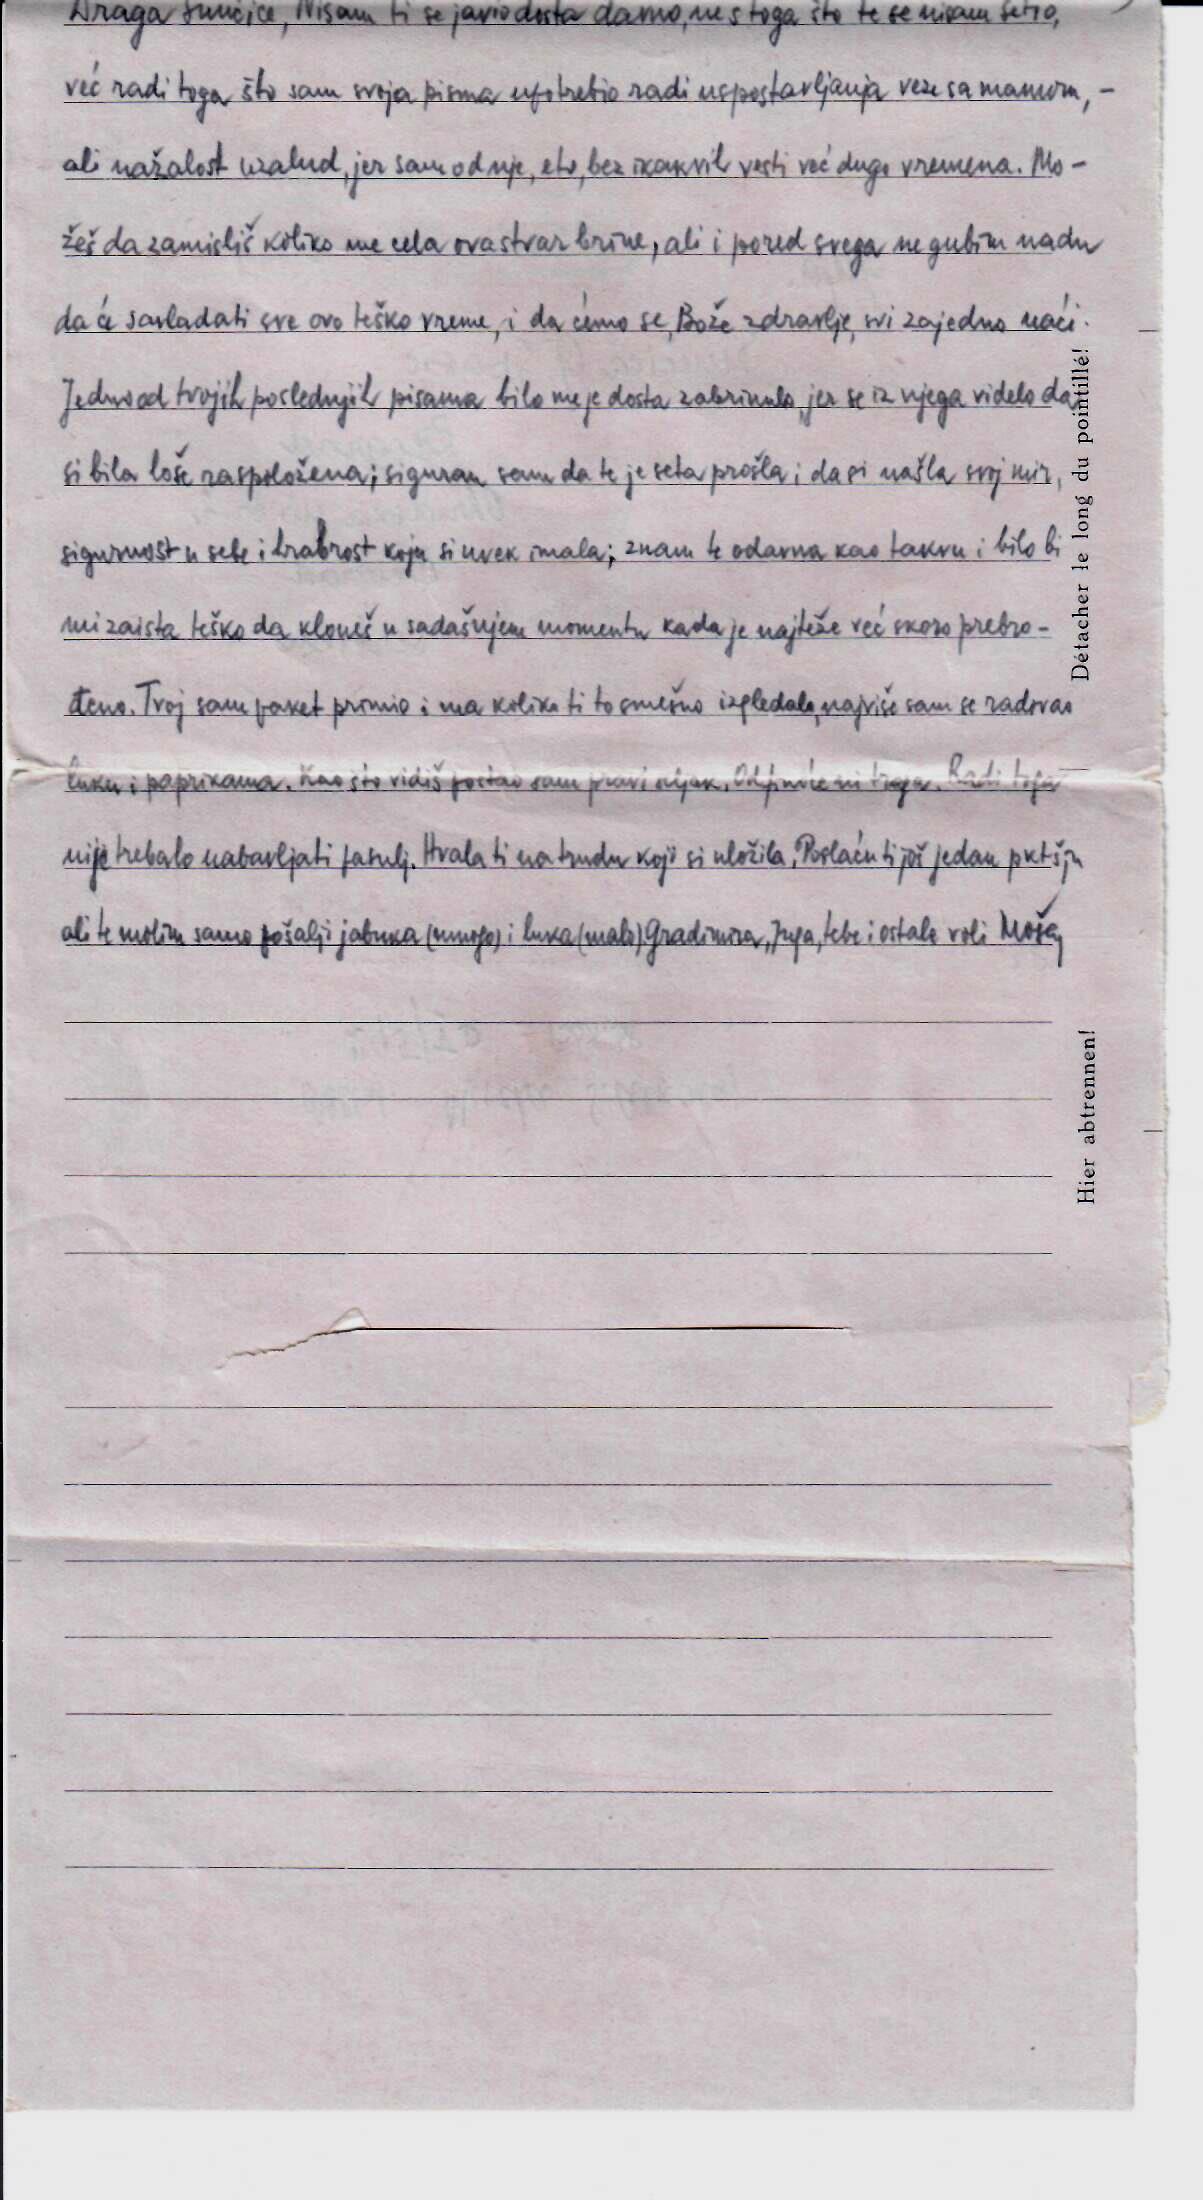 Draga Sunčice, Nisam ti se javio dosta davno, ne s toga što te se nisam setio,
već radi toga što sam svoja pisma upotrebio radi uspostavljanja veze sa mamom, –
ali nažalost uzalud, jer sam od nje, eto, bez ikakvih vesti već dugo vremena. Mo-
žeš da zamisliš koliko me cela ova stvar brine, ali i pored svega ne gubim nadu
da će savladati sve ovo teško vreme, i da ćemo se, Bože zdravlje, svi zajedno naći.
Jedno od tvojih poslednjih pisama bilo me je dosta zabrinulo, jer se iz njega videlo da
si bila loše raspoložena; siguran sam da te je seta prošla i da si našla svoj mir,
sigurnost u sebe i hrabrost koju si uvek imala; znam te odavna kao takvu i bilo bi
mi zaista teško da kloneš u sadašnjem momentu kada je najteže već skoro prebro-
đeno. Tvoj sam paket primio i ma koliko ti to smešno izgledalo, najviše sam se radovao
luku i paprikama. Kao što vidiš postao sam pravi seljak. Radi toga
nije trebalo nabavljati pasulj. Hvala ti na trudu koji si uložila. Poslaću ti još jedan pktšju
ali te molim samo pošalji jabuka (mnogo) i luka (malo) Gradimira, Juga, tebe i ostale voli Moša
Détacher le long du pointillé!
Hier abtrennen!